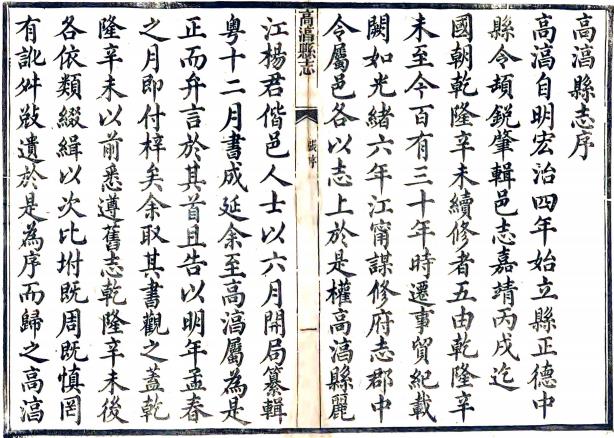 高淳縣志序
高淳自明宏治四年始立縣正德中
縣令頓銳肇輯邑志嘉靖丙戌迄
國朝乾隆辛未續修者五由乾隆辛
未至今百有三十年時遷事貿紀載
闕如光緒六年江甯謀修府志郡中
令屬邑各以志上於是權高淳縣麗
高淳縣志
張序
一
江楊君偕邑人士以六月開局纂輯
粵十二月書成延余至高淳屬為是
正而弁言於其首且告以明年孟春
之月即付梓矣余取其書觀之蓋乾
隆辛未以前悉遵舊志乾隆辛未後
各依類綴緝以次比坿既周既慎罔
有訛舛敚遺於是為序而歸之高淳